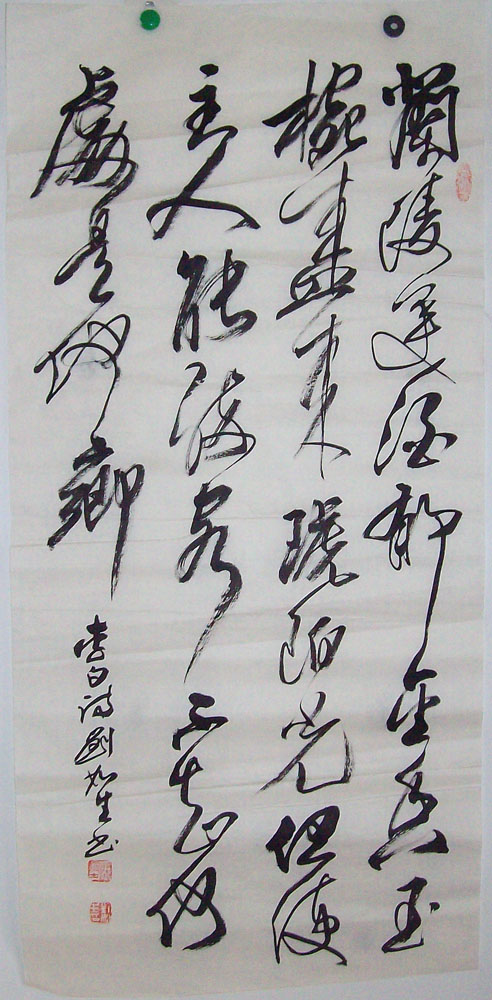 蘭陵美酒郁金香玉
椀盛来琥珀光但使
主人能醉客不知何
處是他鄉
李白詩劉如生书